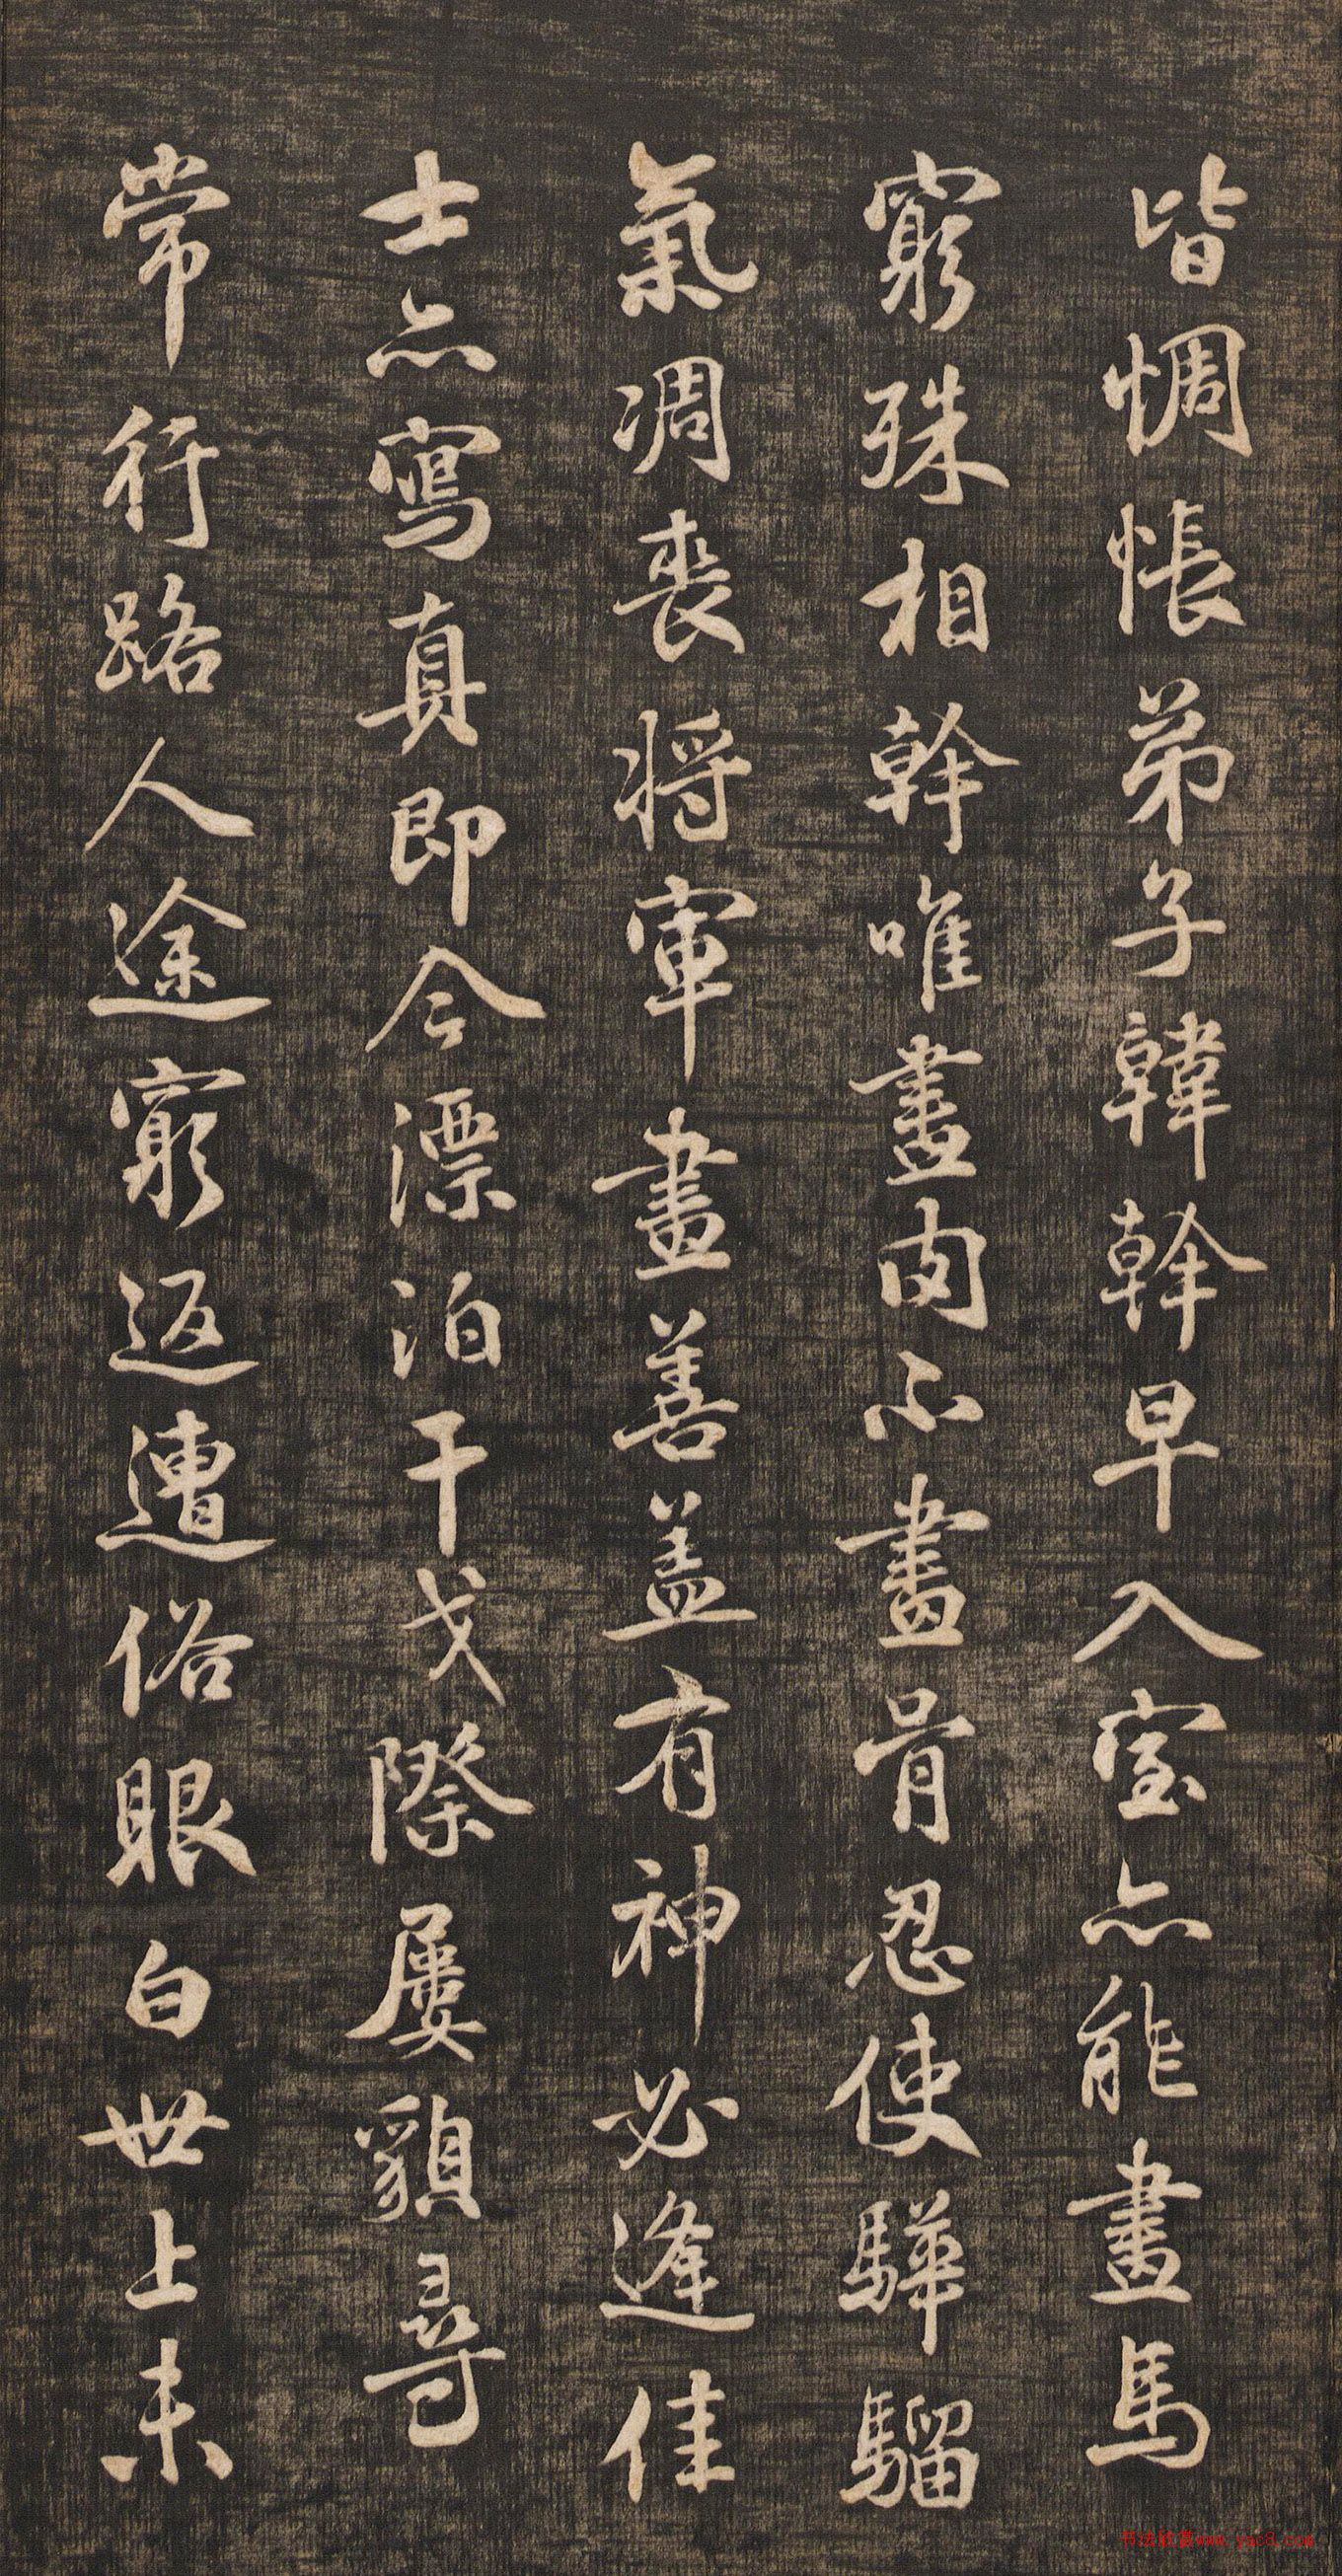 皆惆悵弟子韓幹早入室亦能畫馬
窮殊相幹唯畫肉不畫骨忍使驊騮
氣凋喪將軍畫善蓋有神必逢佳
士亦寫真即今漂泊干戈際屢貌尋
常行路人途窮返遭俗眼白世上未
书法欣赏www.yac8.com